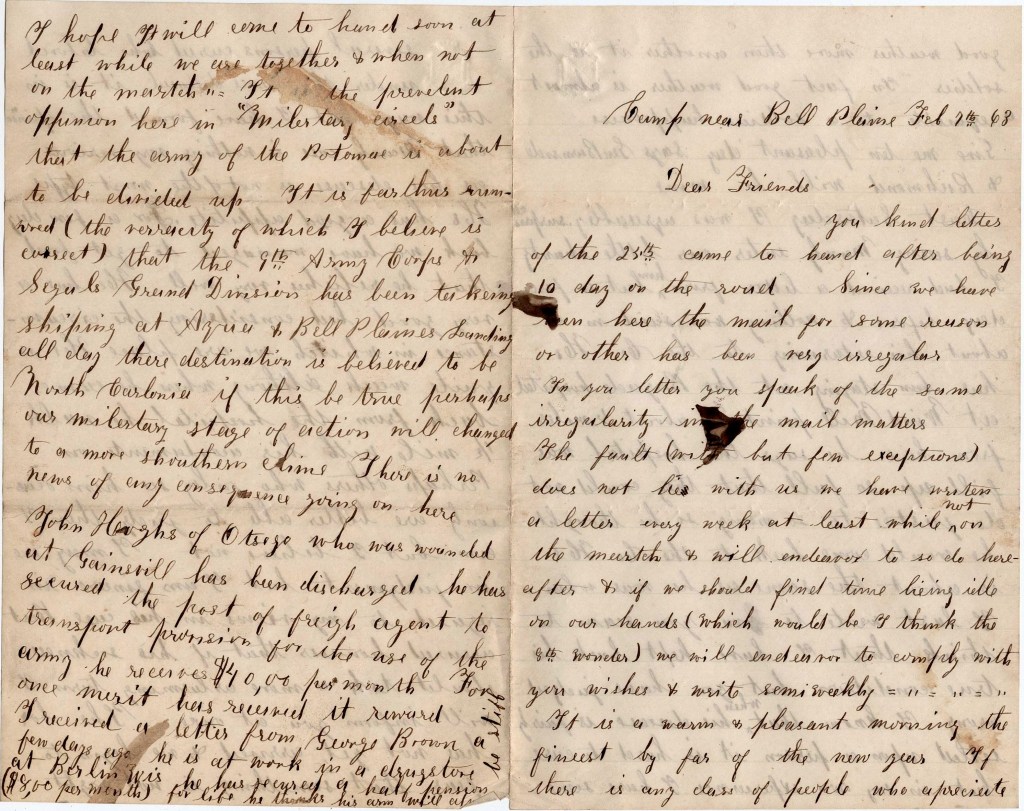 I hope It will come to hand soon at
least while we are together & when not
on the martch "= It is the prevelent
oppinion here in "Milestary circels"
that the army of the Potomac is about
to be divided up It is farthur rum-
ored (the verracity of which I believe is
correct) that the 9th Army Corps &
Seguls Grand Division has been takeing
shiping at Aqua & Bell Plaines Landing
all day there destination is believed to be
North Carlonia if this be true perhaps
our milertary stage of action will changed
to a more shouthern clime There is no
news of any consequence going on here
John Heughs of Otsego who was wounded
at Gainsvill has been discharged he has
secured the post of freigh agent to
transport provision for the use of the
army he receives $40,00 per month For
once merit has received it reward
I received a letter from George Brown a
few days ago he is at work in a drugstore
at Berlin Wis he has secured a half pension
($8,00 per month) for life he thinks his arm will als
be stiff
Camp near Bell Plaine Feb 7th 63
Dear Friends
you kind letter
of the 25th came to hand after being
10 day on the road Since we have
been here the mail for some reason
or other has been very irregular
In you letter you speak of the same
irregularity in the mail matters
The fault (with but few exceptions)
does not lies with us we have writen
a letter every week at least while not on
the martch & will endeavor to so do here-
after & if we should find time being idle
on our hands (which would be I think the
8th wonder) we will endeavor to comply with
you wishes & write semiweekly = " = " = "
It is a warm & pleasant morning the
finest by far of the new year If
there is any class of people who apreciate